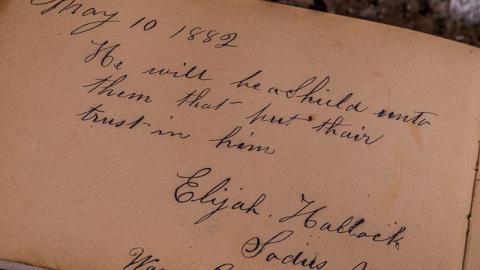 May 10 1882
He will be a Shield unto
them that put thair
trust in him
Elijah. Hallock
Sodus